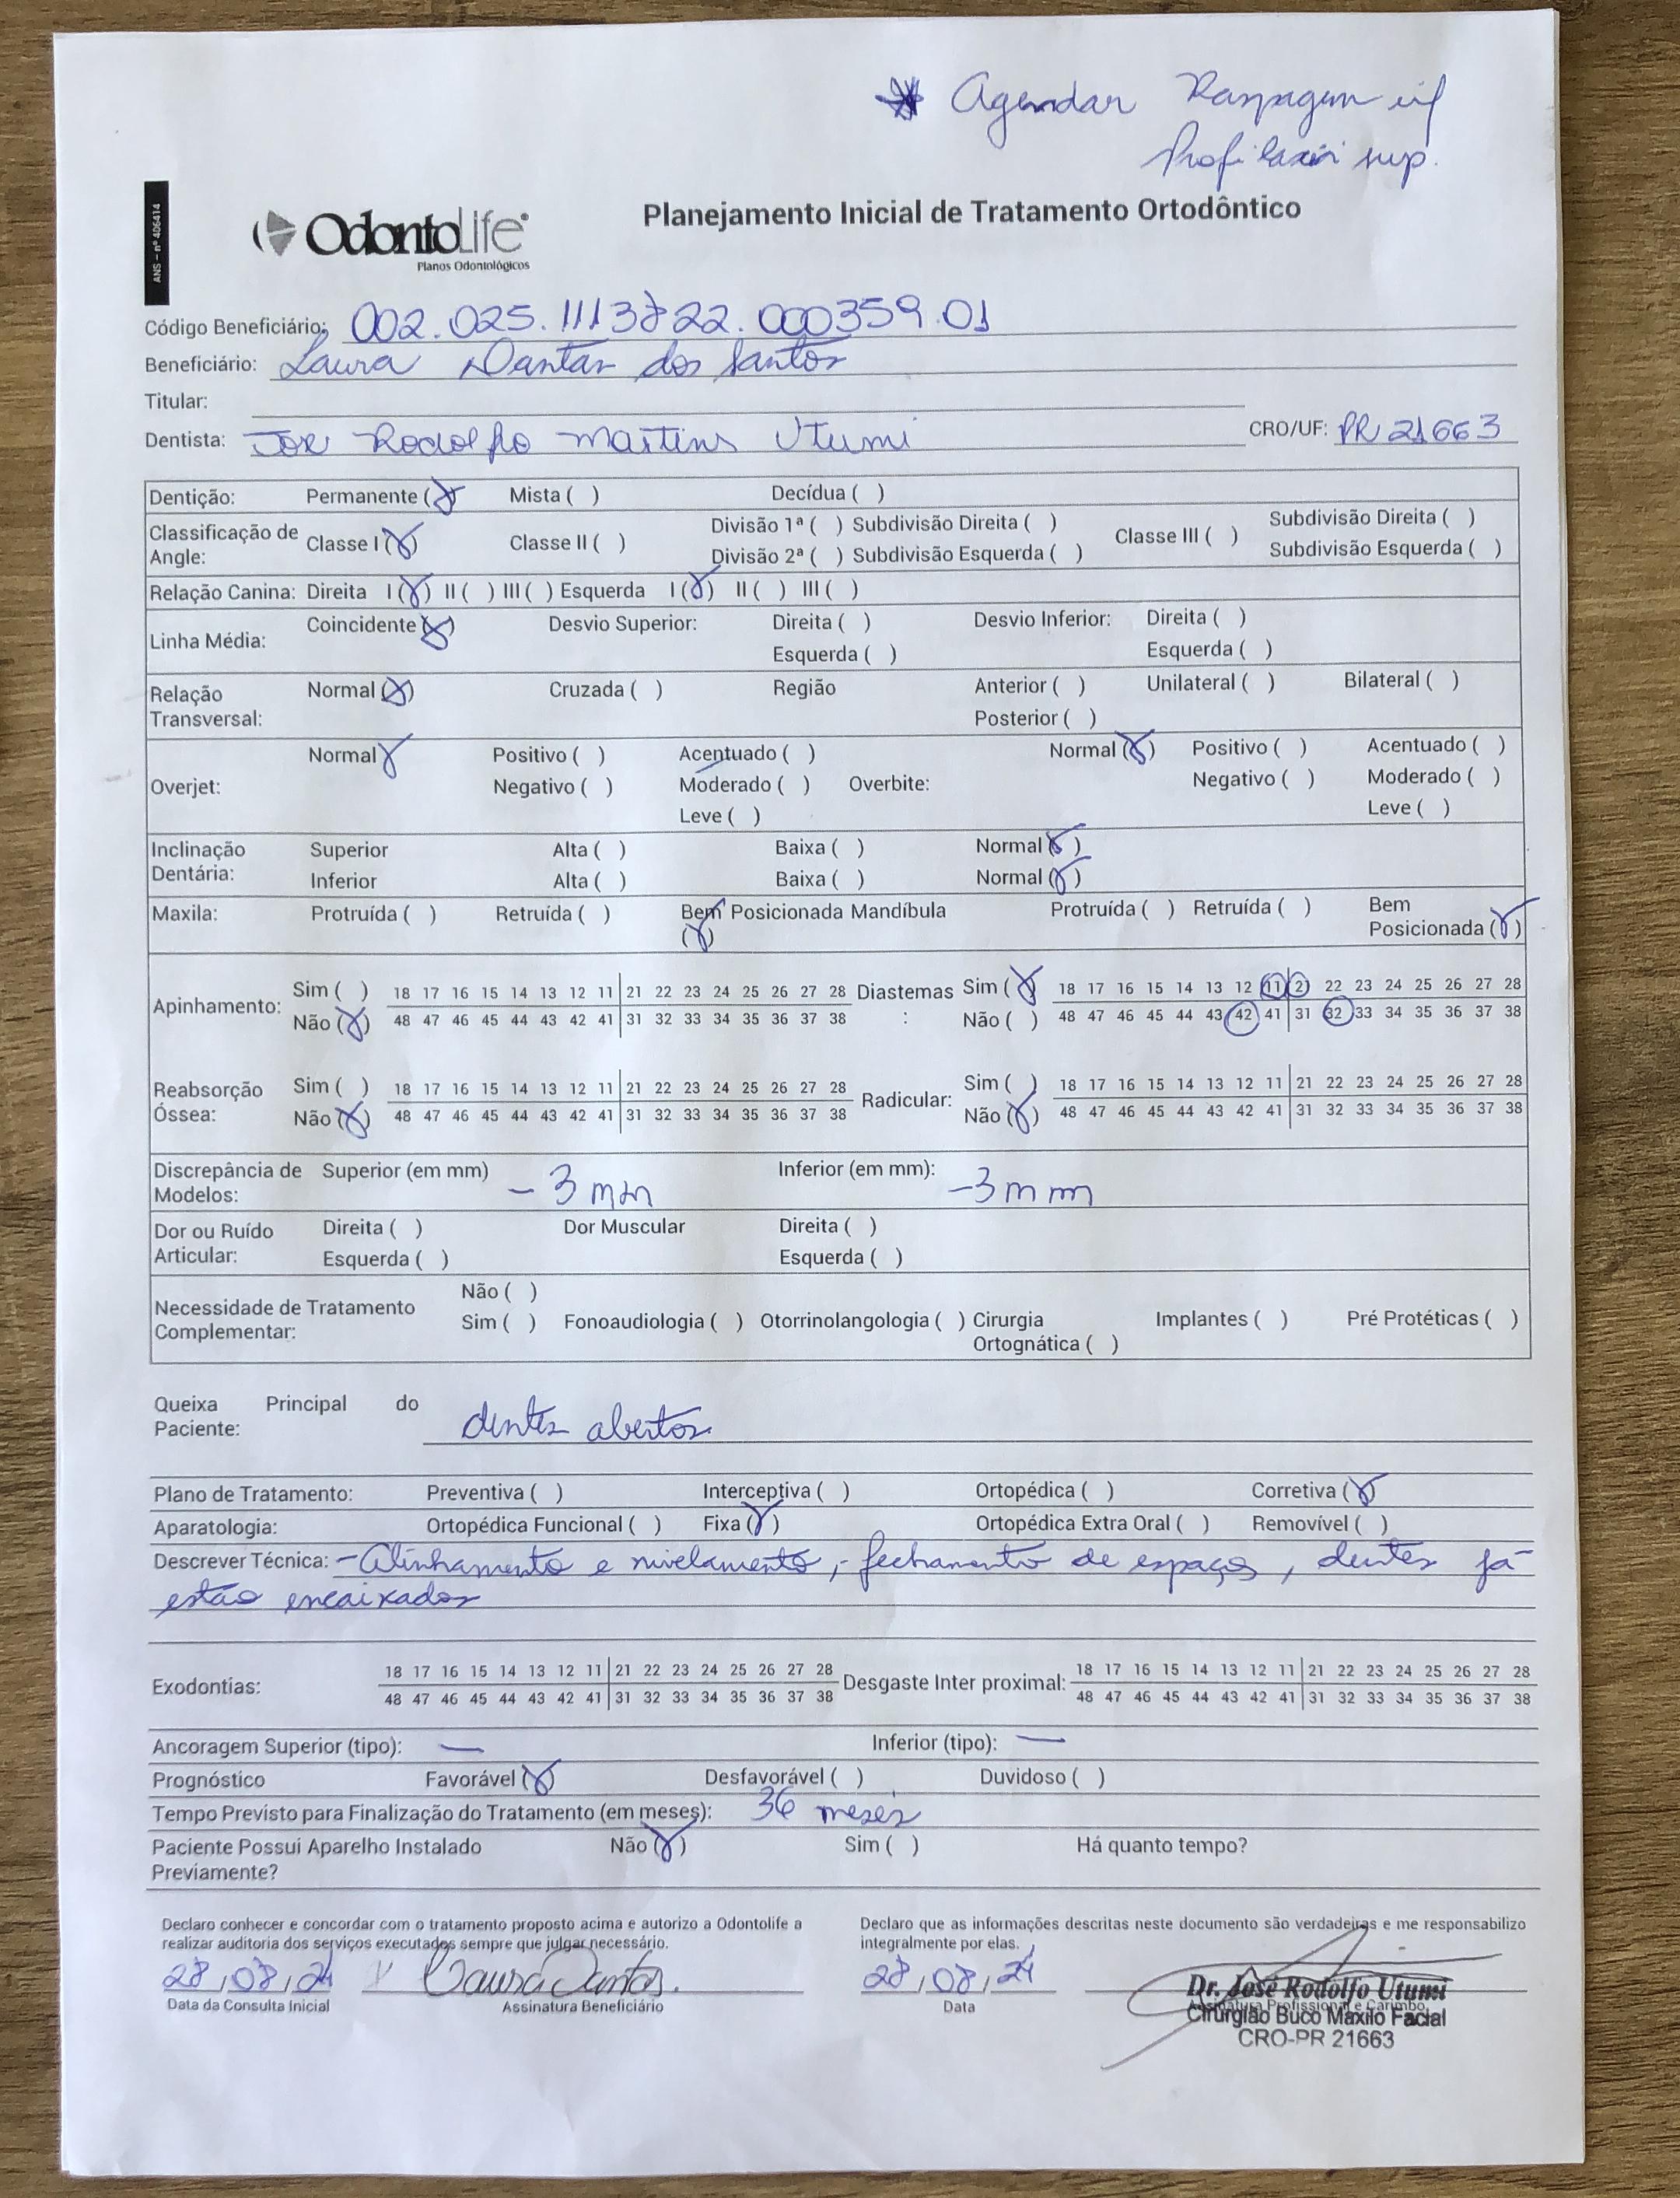 * Agendar Raspagem inf
Profilaxia sup.
ANS – nº 406414
OdontoLife
Planos Odontológicos
Planejamento Inicial de Tratamento Ortodôntico
Código Beneficiário: 002.025.1113822.000359.01
Beneficiário: Laura Dantas dos Santos
Titular:
Dentista: José Rodolfo Martins Utumi CRO/UF: PR 21663
Dentição: Permanente (X) Mista ( ) Decídua ( )
Classificação de Angle: Classe I (X) Classe II ( ) Divisão 1ª ( ) Subdivisão Direita ( ) Classe III ( ) Subdivisão Direita ( )
Divisão 2ª ( ) Subdivisão Esquerda ( ) Subdivisão Esquerda ( )
Relação Canina: Direita I (X) II ( ) III ( ) Esquerda I (X) II ( ) III ( )
Linha Média: Coincidente (X) Desvio Superior: Direita ( ) Desvio Inferior: Direita ( )
Esquerda ( ) Esquerda ( )
Relação Transversal: Normal (X) Cruzada ( ) Região Anterior ( ) Unilateral ( ) Bilateral ( )
Posterior ( )
Overjet: Normal X Positivo ( ) Acentuado ( ) Overbite: Normal (X) Positivo ( ) Acentuado ( )
Negativo ( ) Moderado ( ) Negativo ( ) Moderado ( )
Leve ( ) Leve ( )
Inclinação Dentária: Superior Alta ( ) Baixa ( ) Normal (X)
Inferior Alta ( ) Baixa ( ) Normal (X)
Maxila: Protruída ( ) Retruída ( ) Bem Posicionada (X) Mandíbula Protruída ( ) Retruída ( ) Bem Posicionada (X)
Apinhamento: Sim ( ) 18 17 16 15 14 13 12 11 21 22 23 24 25 26 27 28 Diastemas: Sim (X) 18 17 16 15 14 13 12 11 21 22 23 24 25 26 27 28
Não (X) 48 47 46 45 44 43 42 41 31 32 33 34 35 36 37 38 Não ( ) 48 47 46 45 44 43 42 41 31 32 33 34 35 36 37 38
Reabsorção Óssea: Sim ( ) 18 17 16 15 14 13 12 11 21 22 23 24 25 26 27 28 Radicular: Sim ( ) 18 17 16 15 14 13 12 11 21 22 23 24 25 26 27 28
Não (X) 48 47 46 45 44 43 42 41 31 32 33 34 35 36 37 38 Não (X) 48 47 46 45 44 43 42 41 31 32 33 34 35 36 37 38
Discrepância de Modelos: Superior (em mm) - 3 mm Inferior (em mm): -3 mm
Dor ou Ruído Articular: Direita ( ) Dor Muscular Direita ( )
Esquerda ( ) Esquerda ( )
Necessidade de Tratamento Complementar: Não ( )
Sim ( ) Fonoaudiologia ( ) Otorrinolangologia ( ) Cirurgia Ortognática ( ) Implantes ( ) Pré Protéticas ( )
Queixa Principal do Paciente: dentes abertos
Plano de Tratamento: Preventiva ( ) Interceptiva ( ) Ortopédica ( ) Corretiva (X)
Aparatologia: Ortopédica Funcional ( ) Fixa (X) Ortopédica Extra Oral ( ) Removível ( )
Descrever Técnica: - Alinhamento e nivelamento, - fechamento de espaços, dentes já
estão encaixados
Exodontias: 18 17 16 15 14 13 12 11 21 22 23 24 25 26 27 28 Desgaste Inter proximal: 18 17 16 15 14 13 12 11 21 22 23 24 25 26 27 28
48 47 46 45 44 43 42 41 31 32 33 34 35 36 37 38 48 47 46 45 44 43 42 41 31 32 33 34 35 36 37 38
Ancoragem Superior (tipo): — Inferior (tipo): —
Prognóstico Favorável (X) Desfavorável ( ) Duvidoso ( )
Tempo Previsto para Finalização do Tratamento (em meses): 36 meses
Paciente Possui Aparelho Instalado Previamente? Não (X) Sim ( ) Há quanto tempo?
Declaro conhecer e concordar com o tratamento proposto acima e autorizo a Odontolife a
realizar auditoria dos serviços executados sempre que julgar necessário.
28/08/24 x Laura Dantas.
Data da Consulta Inicial Assinatura Beneficiário
Declaro que as informações descritas neste documento são verdadeiras e me responsabilizo
integralmente por elas.
28/08/24
Data Assinatura Profissional e Carimbo
Dr. José Rodolfo Utumi
Cirurgião Buco Maxilo Facial
CRO-PR 21663